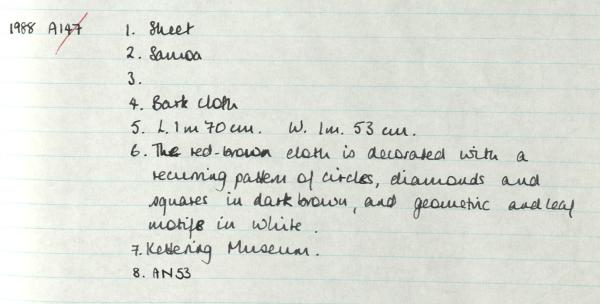 1988 A147 1. Sheet
2. Samoa
3.
4. Bark cloth
5. L. 1m 70 cm. W. 1m. 53 cm.
6. The red-brown cloth is decorated with a
recurring pattern of circles, diamonds and
squares in dark brown, and geometric and leaf
motifs in white.
7. Kettering Museum.
8. AN53